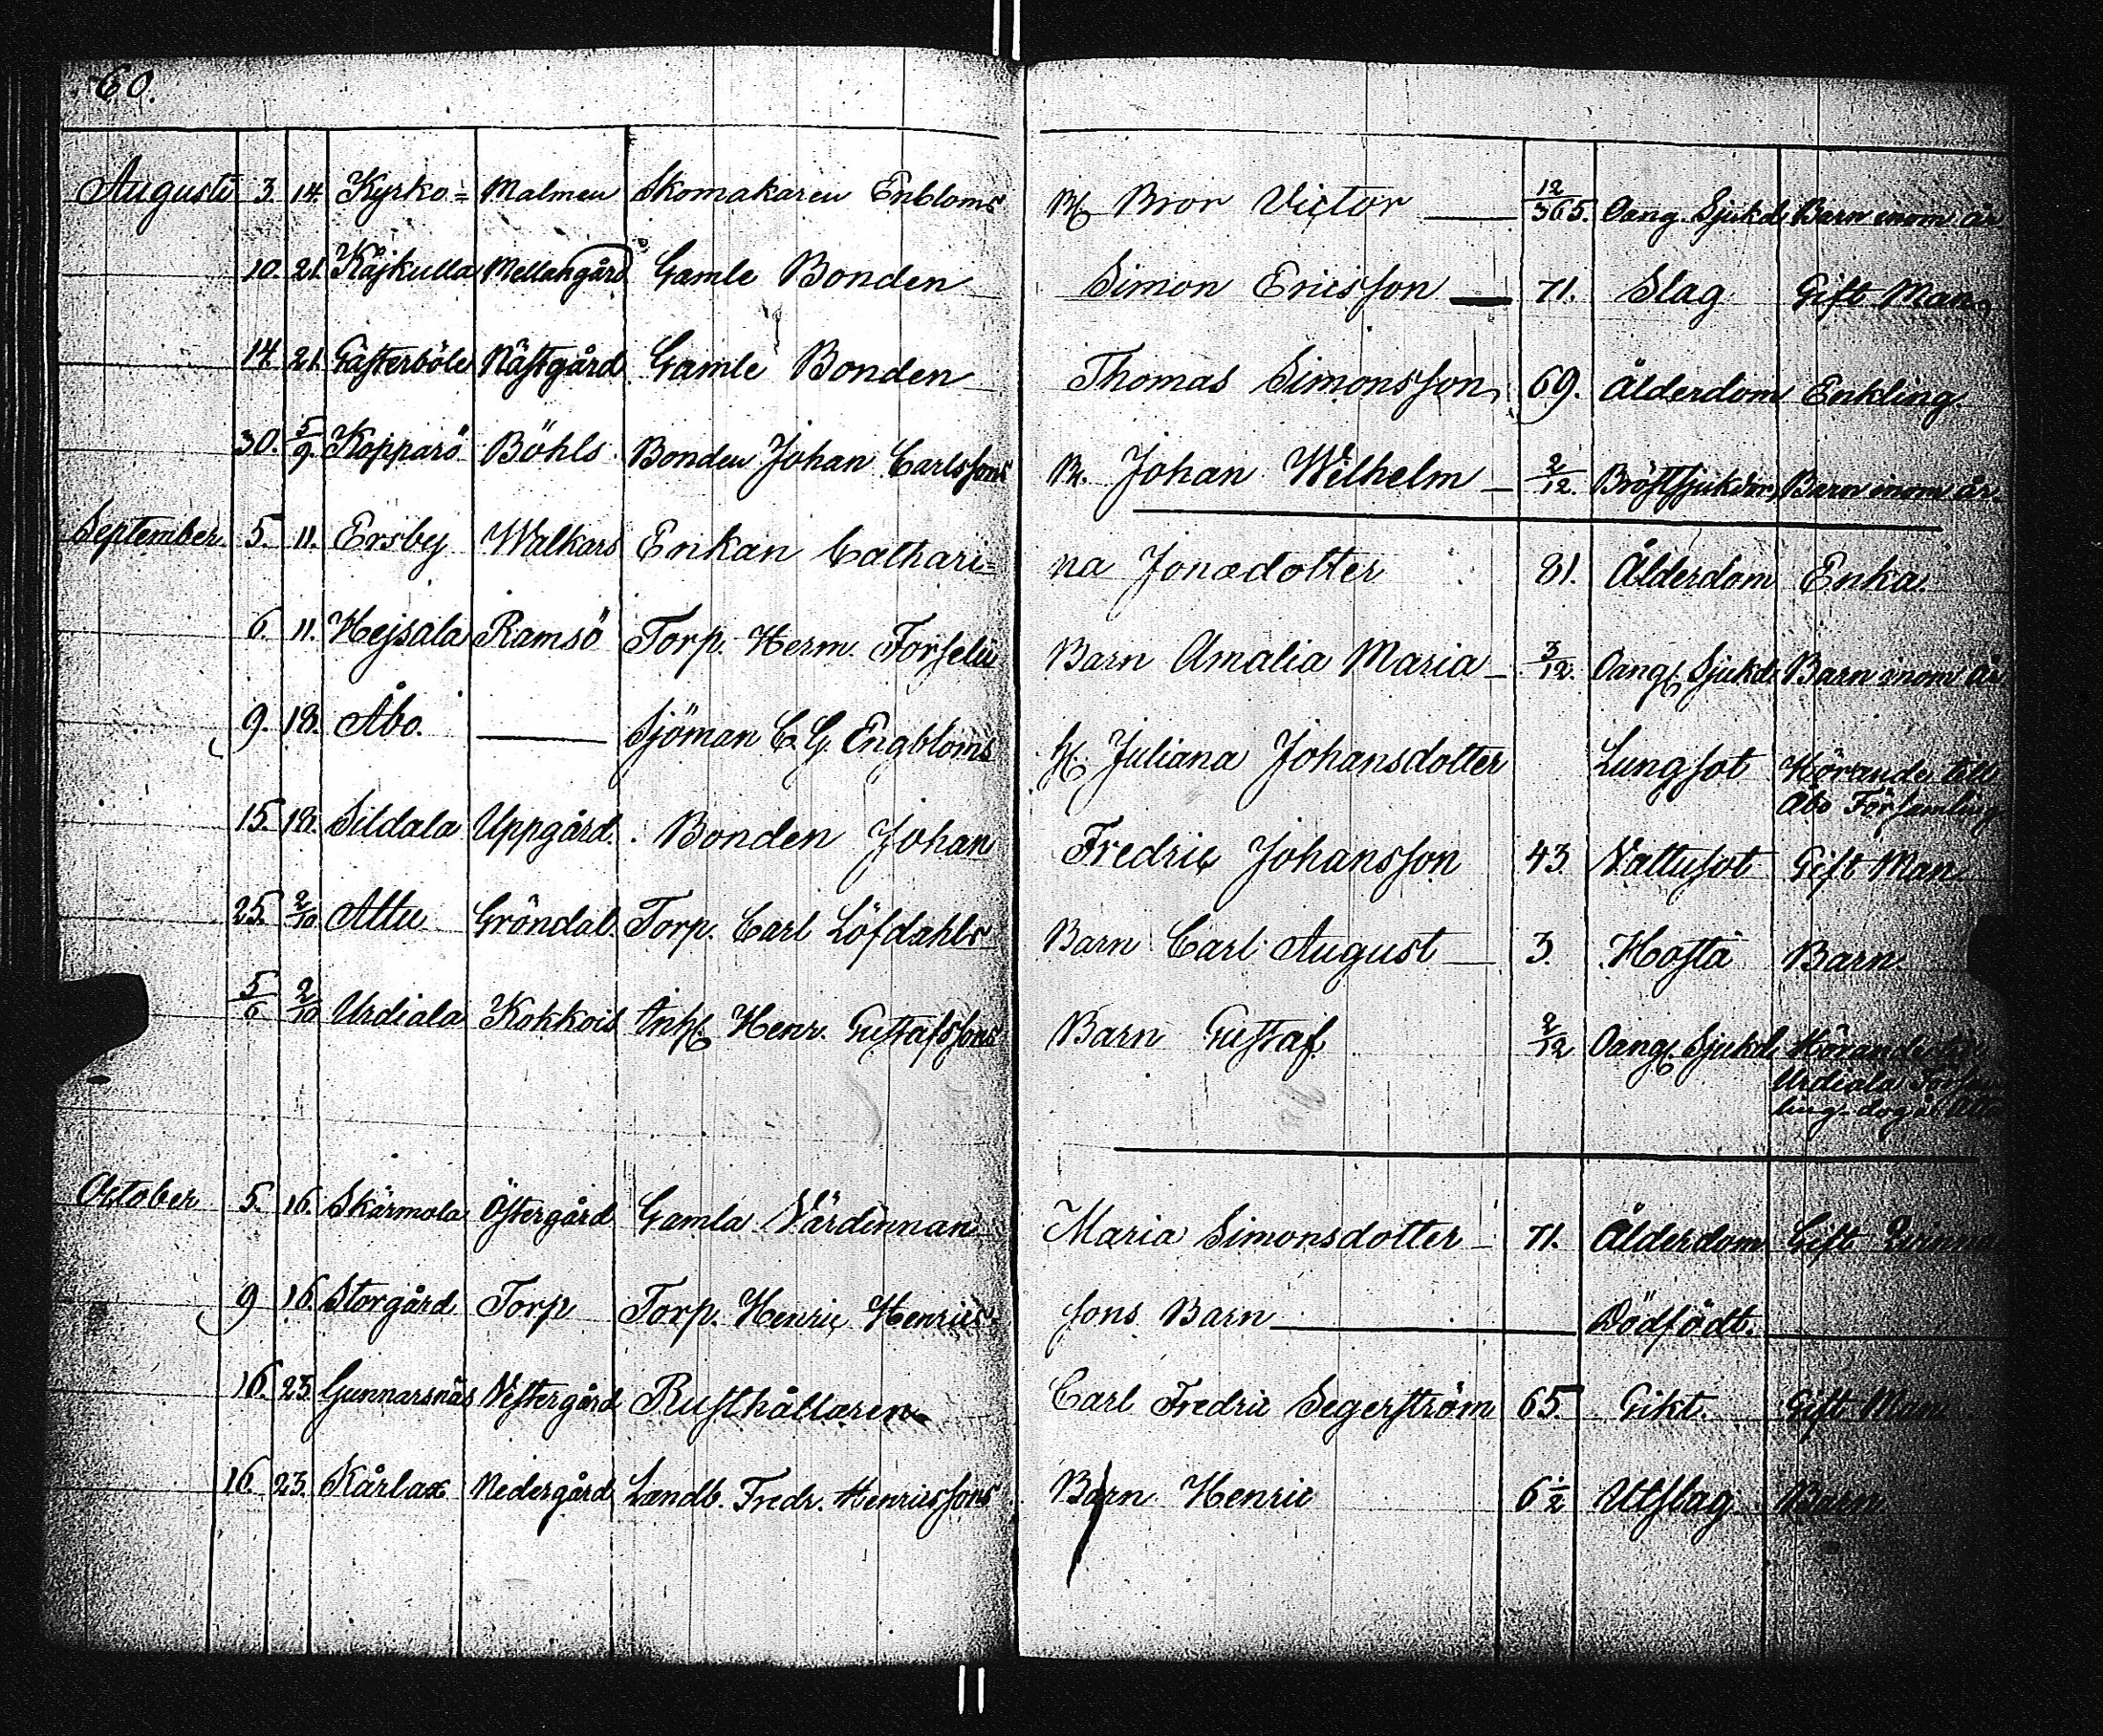 60.
Augusti 3. 14. Kyrko= Malmen Skomakaren Enbloms B. Bror Victor 12/365. Oang. Sjukd. Barn inom år
10. 21. Käjkulla Mellangård Gamle Bonden Simon Ericsson 71. Slag Gift Man
14. 21. Gästerböle Nästgård Gamle Bonden Thomas Simonsson 69. Ålderdom Enkling.
30. 5/9. Kopparö Böhls Bonden Johan Carlssons Bn. Johan Wilhelm 2/12. Bröstsjukdom Barn inom år
September 5. 11. Ersby Walkars Enkan Cathari=na Jonædotter 81. Ålderdom Enka.
6. 11. Hejsala Ramsö Torp. Herm. Forselii Barn Amalia Maria 3/12. Oang. Sjukd. Barn inom år
9. 18. Åbo. Sjöman C. G. Engbloms H. Juliana Johansdotter Lungsot Hörande till
Åbo Församling
15. 18. Sildala Uppgård. Bonden Johan Fredric Johansson 43. Vattusot Gift Man
25. 2/10 Attu Gröndal Torp. Carl Löfdahls Barn Carl August 3. Hosta Barn
5/6 2/10 Urdiala Kokkois Inh. Henr. Gustafssons Barn Gustaf 2/12 Oang. Sjukd. Hörande till
Urdiala Försam
ling
October 5. 16. Skärmola Östergård Gamla Värdinnan Maria Simonsdotter 71. Ålderdom Gift Qvinna
9 16. Storgård Torp Torp. Henric Henrics-sons Barn Dödfödt.
16. 23. Gunnarsnäs Vestergård Rusthållaren Carl Fredric Segerström 65 Gikt. Gift Man
16. 23. Kårlax Nedergård Landb. Fredr. Henricssons Barn Henric 6 1/2 Utslag Barn